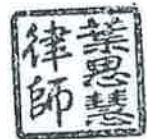 葉思慧
律師